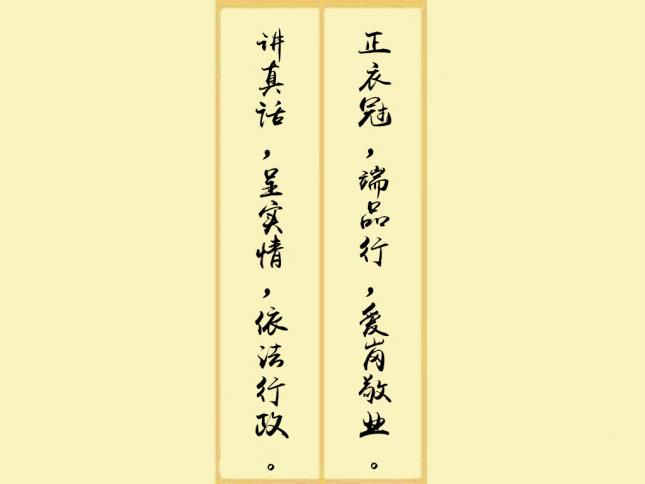 正衣冠，端品行，爱岗敬业。
讲真话，呈实情，依法行政。